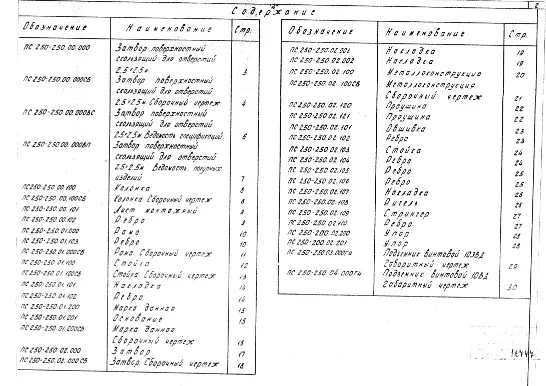 Содержание
2
Обозначение Наименование Стр.
ПС 250-250.00.000 Затвор поверхностный
скользящий для отверстий
2.5×2.5м 3
ПС 250-250.00.000СБ Затвор поверхностный
скользящий для отверстий
2.5×2.5м Сборочный чертеж 4
ПС 250-250.00.000ВС Затвор поверхностный
скользящий для отверстий
2.5×2.5м Ведомость спецификаций 5
ПС 250-250.00.000ВП Затвор поверхностный
скользящий для отверстий
2.5×2.5м Ведомость покупных
изделий 7
ПС250-250.00.100 Колонка 8
ПС 250-250.00.100СБ Колонка Сборочный чертеж 8
ПС 250-250.00.101 Лист монтажный 9
ПС 250-250.00.102 Ребро 9
ПС 250-250.01.000 Рама 10
ПС 250-250.01.103 Ребро 10
ПС 250-250.01.000СБ Рама. Сборочный чертеж 11
ПС 250-250.01.100 Стойка 12
ПС 250-250.01.100СБ Стойка Сборочный чертеж 13
ПС 250-250.01.101 Накладка 14
ПС 250-250.01.102 Ребро 14
ПС 250-250.01.200 Марка данная 15
ПС 250-250.01.201 Основание 15
ПС 250-250.01.200СБ Марка данная
Сборочный чертеж 16
ПС 250-250.02.000 Затвор 17
ПС 250-250.02.000СБ Затвор. Сборочный чертеж 18
Обозначение Наименование Стр.
ПС 250-250.02.001 Накладка 19
ПС 250-250.02.002 Накладка 19
ПС 250-250.02.100 Металлоконструкция 20
ПС 250-250.02.100СБ Металлоконструкция
Сборочный чертеж 21
ПС 250-250.02.120 Проушина 22
ПС 250-250.02.121 Проушина 22
ПС 250-250.02.101 Обшивка 23
ПС 250-250.02.102 Ребро 23
ПС 250-250.02.103 Стойка 24
ПС 250-250.02.104 Ребро 24
ПС 250-250.02.105 Ребро 25
ПС 250-250.02.106 Ребро 25
ПС 250-250.02.107 Накладка 25
ПС 250-250.02.108 Ригель 26
ПС 250-250.02.109 Стрингер 27
ПС 250-250.02.110 Ребро 27
ПС 250-200.02.200 Упор 28
ПС 250-200.02.201 Упор 28
ПС 250-250.03.000ГЧ Подъемник винтовой 10ЭВД
Габаритный чертеж 29
ПС 250-250.04.000ГЧ Подъемник винтовой 10РВД
Габаритный чертеж 30